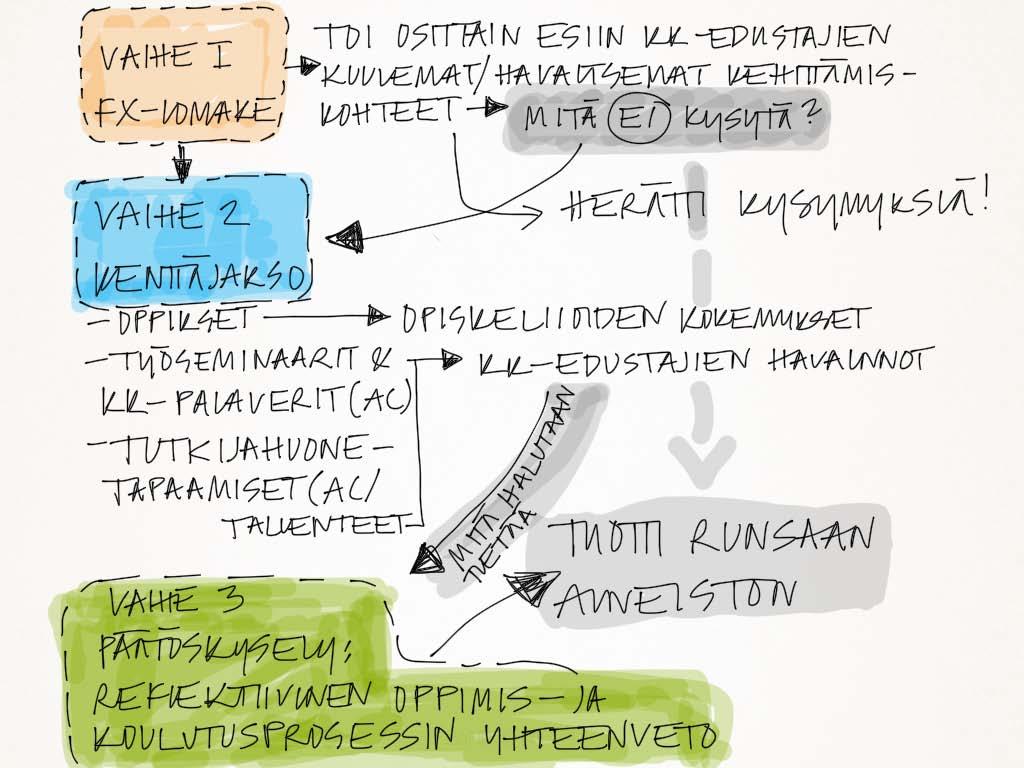 VAIHE I
FX-LOMAKE
TOI OSITTAIN ESIIN KK-EDUSTAJIEN
KUULEMAT/HAVAITSEMAT KEHITTÄMIS-
KOHTEET
MITÄ EI KYSYTÄ?
HERÄTTI KYSYMYKSIÄ!
VAIHE 2
KENTTÄJAKSO
- OPPIKSET
OPISKELIJOIDEN KOKEMUKSET
- TYÖSEMINAARIT &
KK-PALAVERIT (AC)
KK-EDUSTAJIEN HAVAINNOT
- TUTKIJAHUONE-
TAPAAMISET (AC/
TALLENTEET
MITÄ HALUTAAN
TIETÄÄ
TUOTTI RUNSAAN
AINEISTON
VAIHE 3
PÄÄTÖSKYSELY:
REFLEKTIIVINEN OPPIMIS- JA
KOULUTUSPROSESSIN YHTEENVETO